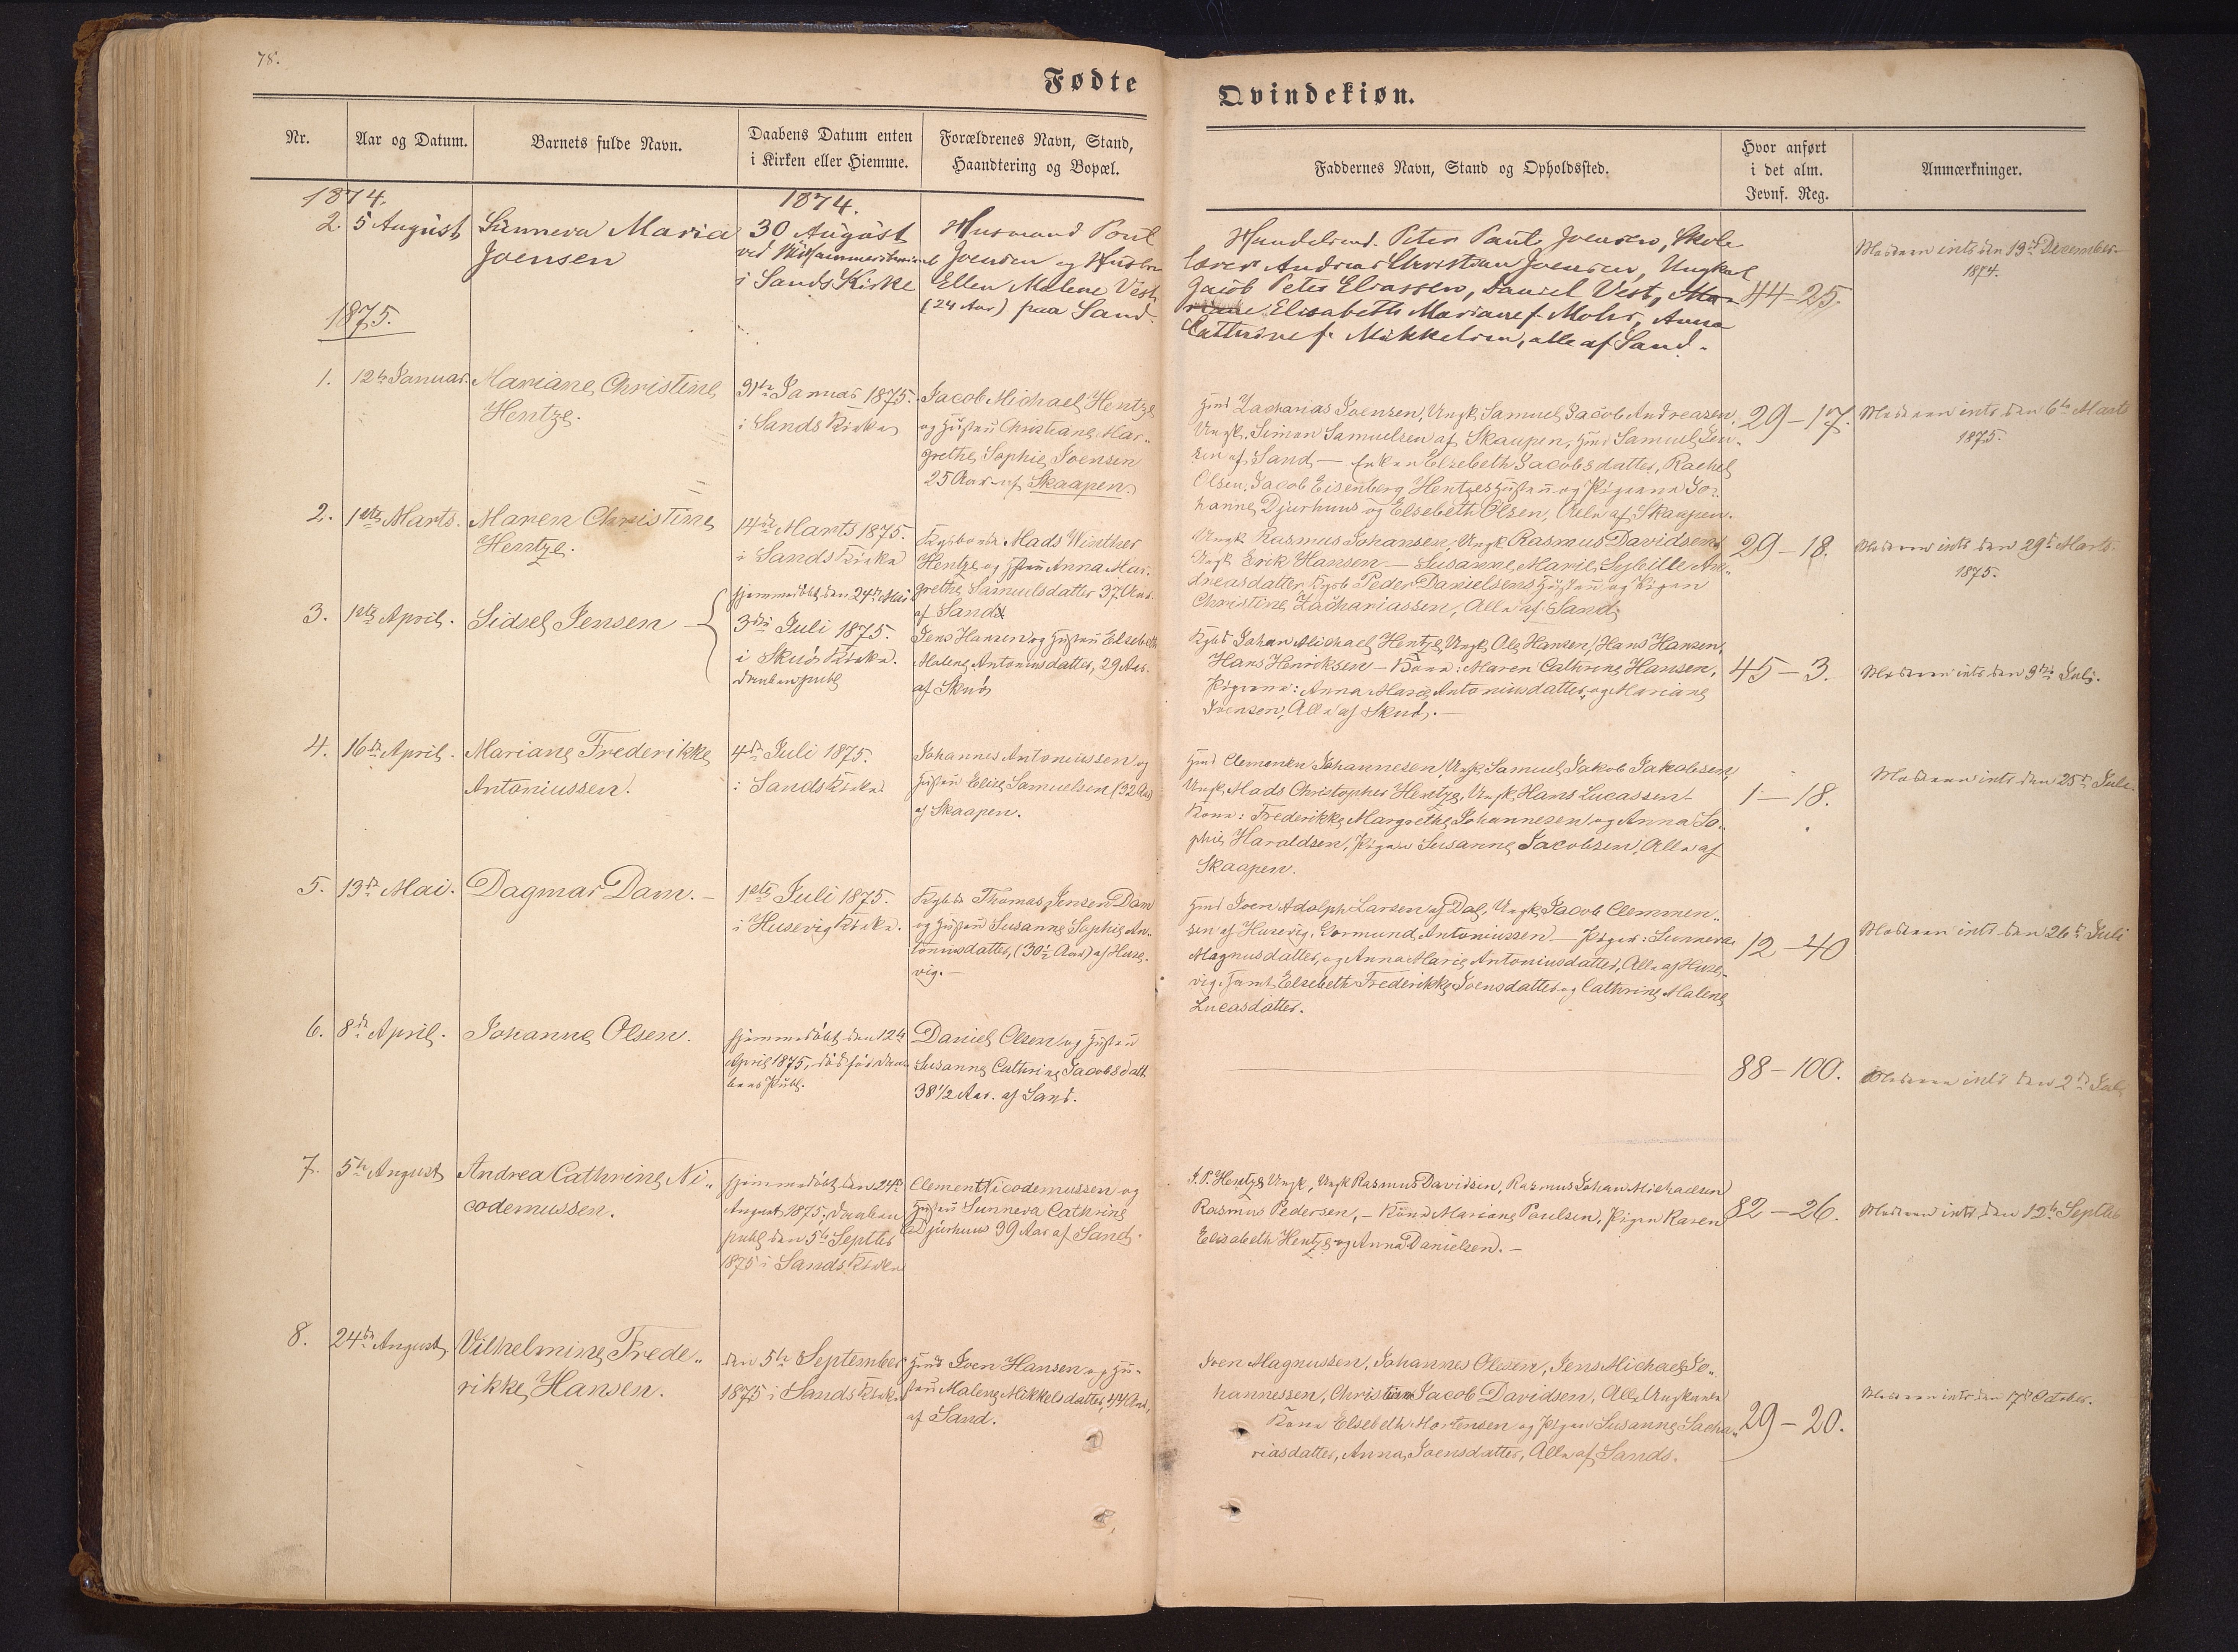 78.
Fødte
Qvindekiøn.
Nr.
Aar og Datum.
Barnets fulde Navn.
Daabens Datum enten
i Kirken eller Hiemme.
Forældrenes Navn, Stand,
Haandtering og Bopæl.
Faddernes Navn, Stand og Opholdssted.
Hvor anført
i det alm.
Jevnf. Reg.
Anmærkninger.
1874.
1874.
2.
5 August
Sunneva Maria
Joensen
30 August
ved
i Sands Kirke
Husmand Poul
Joensen og Hustru
Ellen Malene Vest
(24 Aar) paa Sand.
Handelsmd. Peter Paul Joensen, Skole
lærer Andreas Christian Joensen, Ungkarl
Jacob Peter Eliassen, Daniel Vest, Ma-
riane Elisabeth Mariane f. Mohr, Anna
Cathrine f. Mikkelsen, alle af Sand.
44-25.
Moderen intr. den 13de December
1874.
1875.
1.
12te Januar.
Mariane Christine
Hentze.
31te Januar 1875.
i Sands Kirke
Jacob Michael Hentze
og Hustru Christiane Mar-
grethe Sophie Joensen
25 Aar af Skaapen.
Hmd Zacharias Joensen, Ungk. Samuel Jacob Andreasen,
Ungk. Simon Samuelsen af Skaapen, Hmd Samuel Jen-
sen af Sand — Enken Elsebeth Jacobsdatter, Rachel
Olsen, Jacob Eisenberg Hentzes Hustru og Pigerne Jo-
hanne Djurhuus og Elsebeth Olsen, Alle af Skaapen.
29-17.
Moderen intr. den 6te Marts
1875.
2.
1ste Marts.
Maren Christine
Hentze.
14de Marts 1875.
i Sands Kirke
Mads Winther
Hentze og Hstru Anna Mar-
grethe Samuelsdatter 37 Aar.
af Sand
Ungk Rasmus Johansen, Ungk Rasmus Davidsen,
Ungk Erik Hansen — Susanne Marie Sybille An-
dreasdatter, Peder Danielsens Hustru og Pigen
Christine Zachariassen, Alle af Sand.
29-18.
Moderen intr. den 29de Marts
1875.
3.
1ste April.
Sidsel Jensen
hjemmedøbt den 24de Mai
3die Juli 1875.
i Skuø Kirke.
Daaben publ.
Jens Hansen og Hustru Elsebeth
Malene Antoniusdatter, 29 Aar.
af Skuø
Johan Michael Hentze, Ungk Ole Hansen, Hans Hansen,
Hans Henriksen — Kone: Maren Cathrine Hansen,
Pigerne: Anna Marie Antoniusdatter og Mariane
Joensen, Alle af Skuø. —
45-3.
Moderen intr. den 3die Juli.
4.
16de April.
Mariane Frederikke
Antoniussen.
4de Juli 1875.
i Sands Kirke
Johannes Antoniussen og
Hustru Elise Samuelsen (32 Aar)
af Skaapen.
Hmd Clemen Johannesen, Ungk. Samuel Jakob Jakobsen,
Ungk Mads Christopher Hentze, Ungk Hans Lucassen -
Kone: Frederikke Margrethe Johannesen og Anna So-
phie Haraldsen, Pigen Susanne Jacobsen, Alle af
Skaapen.
1-18.
Moderen intr. den 25de Juli.
5.
13de Mai.
Dagmar Dam. —
1ste Juli 1875.
i Husevig Kirke.
Thomas Jensen Dam
og Hustru Susanne Sophie An-
toniusdatter, (30½ Aar) af Huse-
vig. —
Hmd Joen Adolph Larsen af Dal, Ungk. Jacob Clemmen-
sen af Husevig, Gormund Antoniussen — Piger: Sunneva
Magnusdatter, og Anna Marie Antoniusdatter, Alle af Huse-
vig, samt Elsebeth Frederikke Joensdatter og Cathrine Malene
Lucasdatter.
12-40
Moderen intr. den 26de Juli
6.
8de April.
Johanne Olsen.
hjemmedøbt den 12te
April 1875, død før Daa-
bens Publ.
Daniel Olsen og Hustru
Susanne Cathrine Jacobsdatt
38½ Aar. af Sand.
88-100.
Moderen intr. den 2de Juli
7.
5te August
Andrea Cathrine Ni-
codemussen.
hjemmedøbt den 24de
August 1875, Daaben
publ den 5te Septbr
1875 i Sands Kirke
Clement Nicodemussen og
Hustru Sunneva Cathrine
Djurhuus 39 Aar af Sand.
J. P. Hentze Ungk, Ungk Rasmus Davidsen, Rasmus Johan Michaelsen
Rasmus Pedersen, — Kone Mariane Poulsen, Pigen Karen
Elisabeth Hentze og Anna Danielsen. —
82-26.
Moderen intr. den 12te Septbr
8.
24de August
Vilhelmine Frede-
rikke Hansen.
den 5te September
1875 i Sands Kirke
Hmd Joen Hansen og Hu-
stru Malene Mikkelsdatter, 44 Aar,
af Sand.
Joen Magnussen, Johannes Olesen, Jens Michael Jo-
hannessen, Christian Jacob Davidsen, Alle Ungkarle
Kone Elsebeth Mortensen og Pigen Susanne Sacha-
riasdatter, Anna Joensdatter, Alle af Sands.
29-20.
Moderen intr. den 17de October.